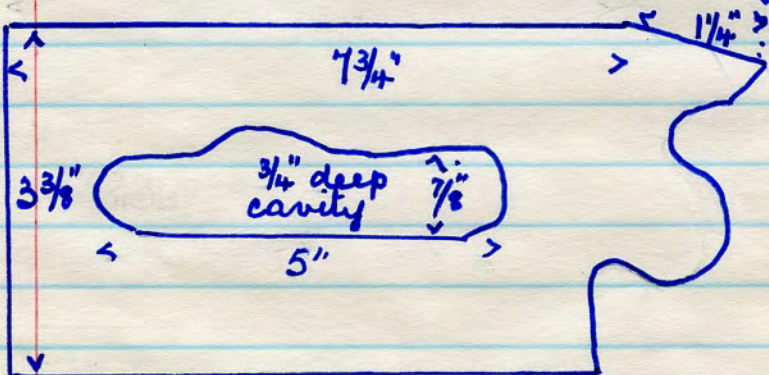 1 1/4"
7 3/4"
3 3/8"
3/4" deep
cavity
7/8"
5"